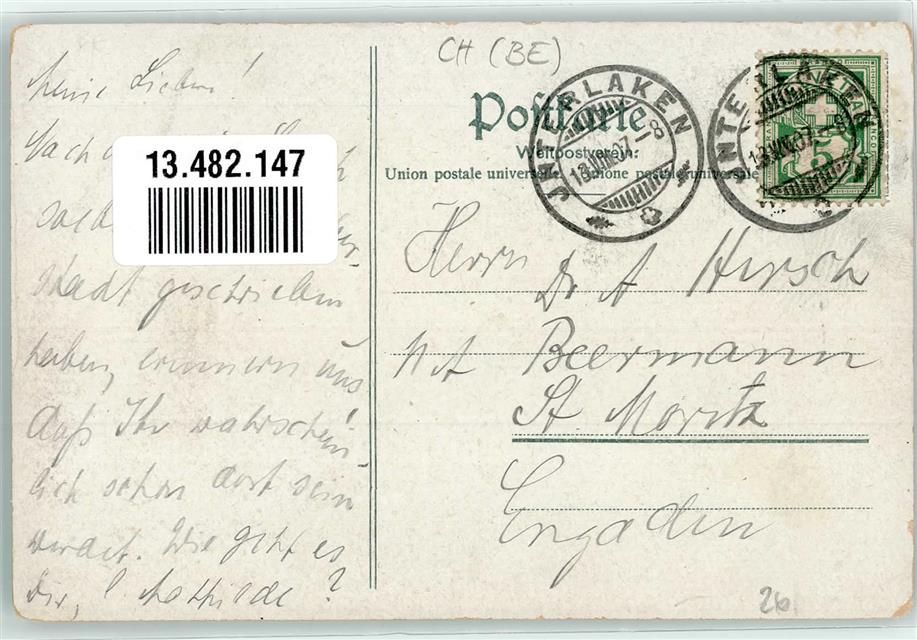 CH (BE)
Postkarte
Weltpostverein:
Union postale universelle. Unione postale universale
INTERLAKEN
13.VIII.07.-8
INTERLAKEN
13.VIII.07.-8
5
13.482.147
Meine Lieben!
Nach
stadt geschrieben
haben, erinnern uns
daß Ihr wahrschein
lich schon dort sein
werdet. Wie geht es
Dir, l. Mathilde?
Herrn
Dr A Hirsch
Beermann
St. Moritz
Engadin
26